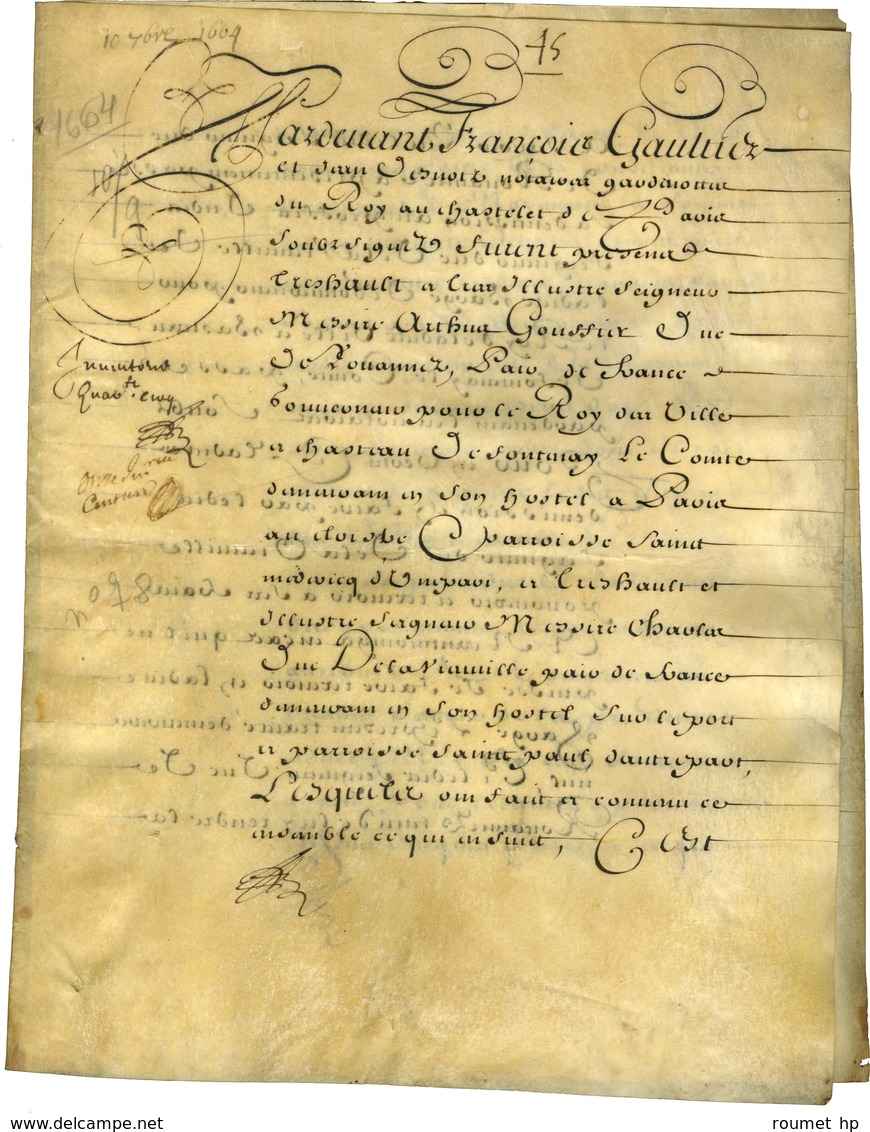 10 7bre 1664
45
1664
Pardevant François Gaultier
et Jean Desnotz notaires gardenottes
du Roy au chastelet de Paris
soubzsignez furent presens
treshault et tres Illustre seigneur
Messire Arthus Gouffier Duc
de Rouannez, Pair de france et
Gouverneur pour le Roy des Ville
et chasteau de fontenay Le Comte
demeurant en son hostel a Paris
au cloistre et parroisse saint
medericq d'Unepart, et treshault et
illustre seigneur Messire Charles
Duc De la Vieuville pair de france
demeurant en son hostel sur le port
et parroisse saint paul, d'autrepart,
Lesquelz ont fait et convenu ce
ensemble ce qui ensuit, C'est
Inventorié
quarte. cinq
no 98
roumet hp